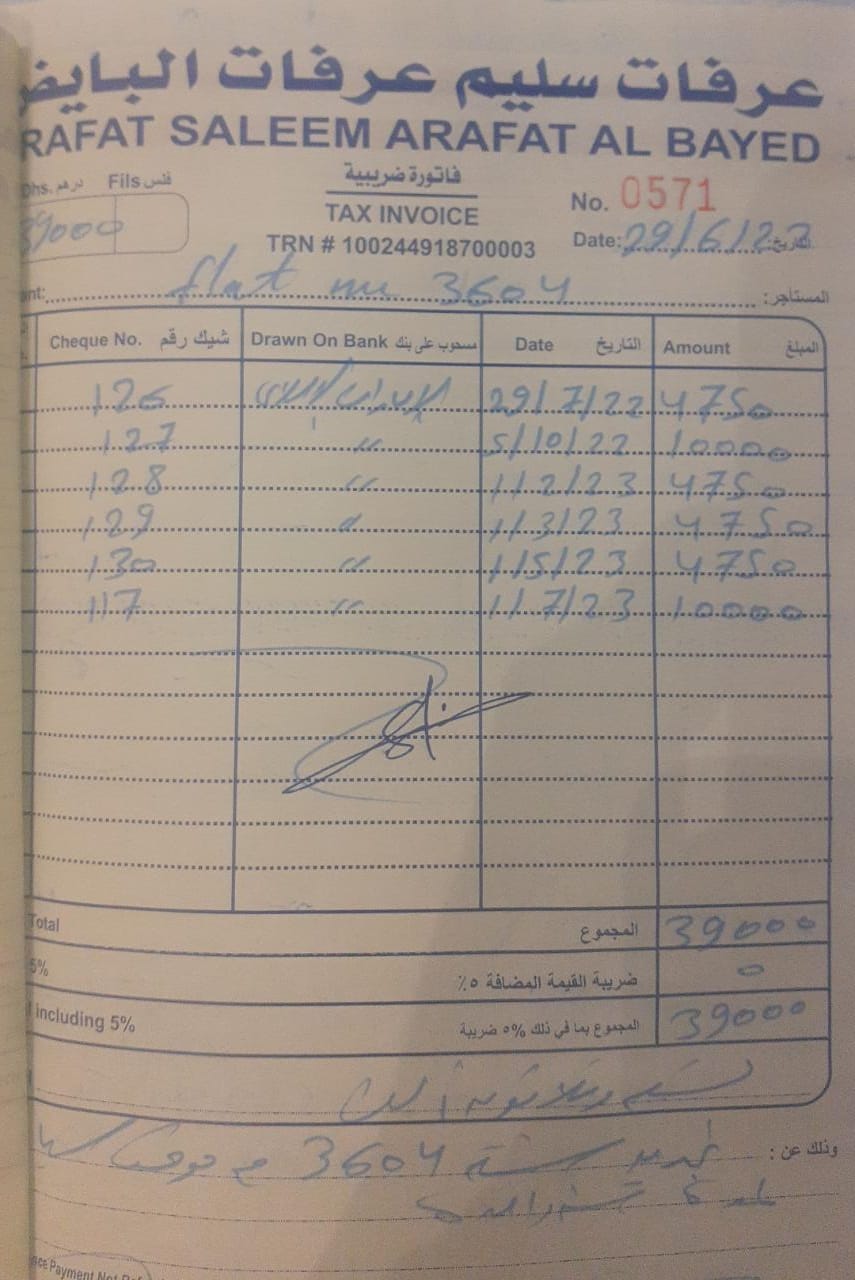 عرفات سليم عرفات البايض
RAFAT SALEEM ARAFAT AL BAYED
Dhs. درهم Fils فلس
فاتورة ضريبية
No. 0571
39000
TAX INVOICE
Date: 29/6/22 التاريخ:
TRN # 100244918700003
flat 3604 المستأجر:
Cheque No. شيك رقم Drawn On Bank مسحوب على بنك Date التاريخ Amount المبلغ
126 29/7/22 4750
127 〃 5/10/22 10000
128 〃 1/2/23 4750
129 〃 1/3/23 4750
130 〃 1/5/23 4750
117 〃 1/7/23 10000
Total المجموع 39000
5% ضريبة القيمة المضافة ٥٪ 0
including 5% المجموع بما في ذلك ٥% ضريبة 39000
ألف
وذلك عن : 3604
Payment Not